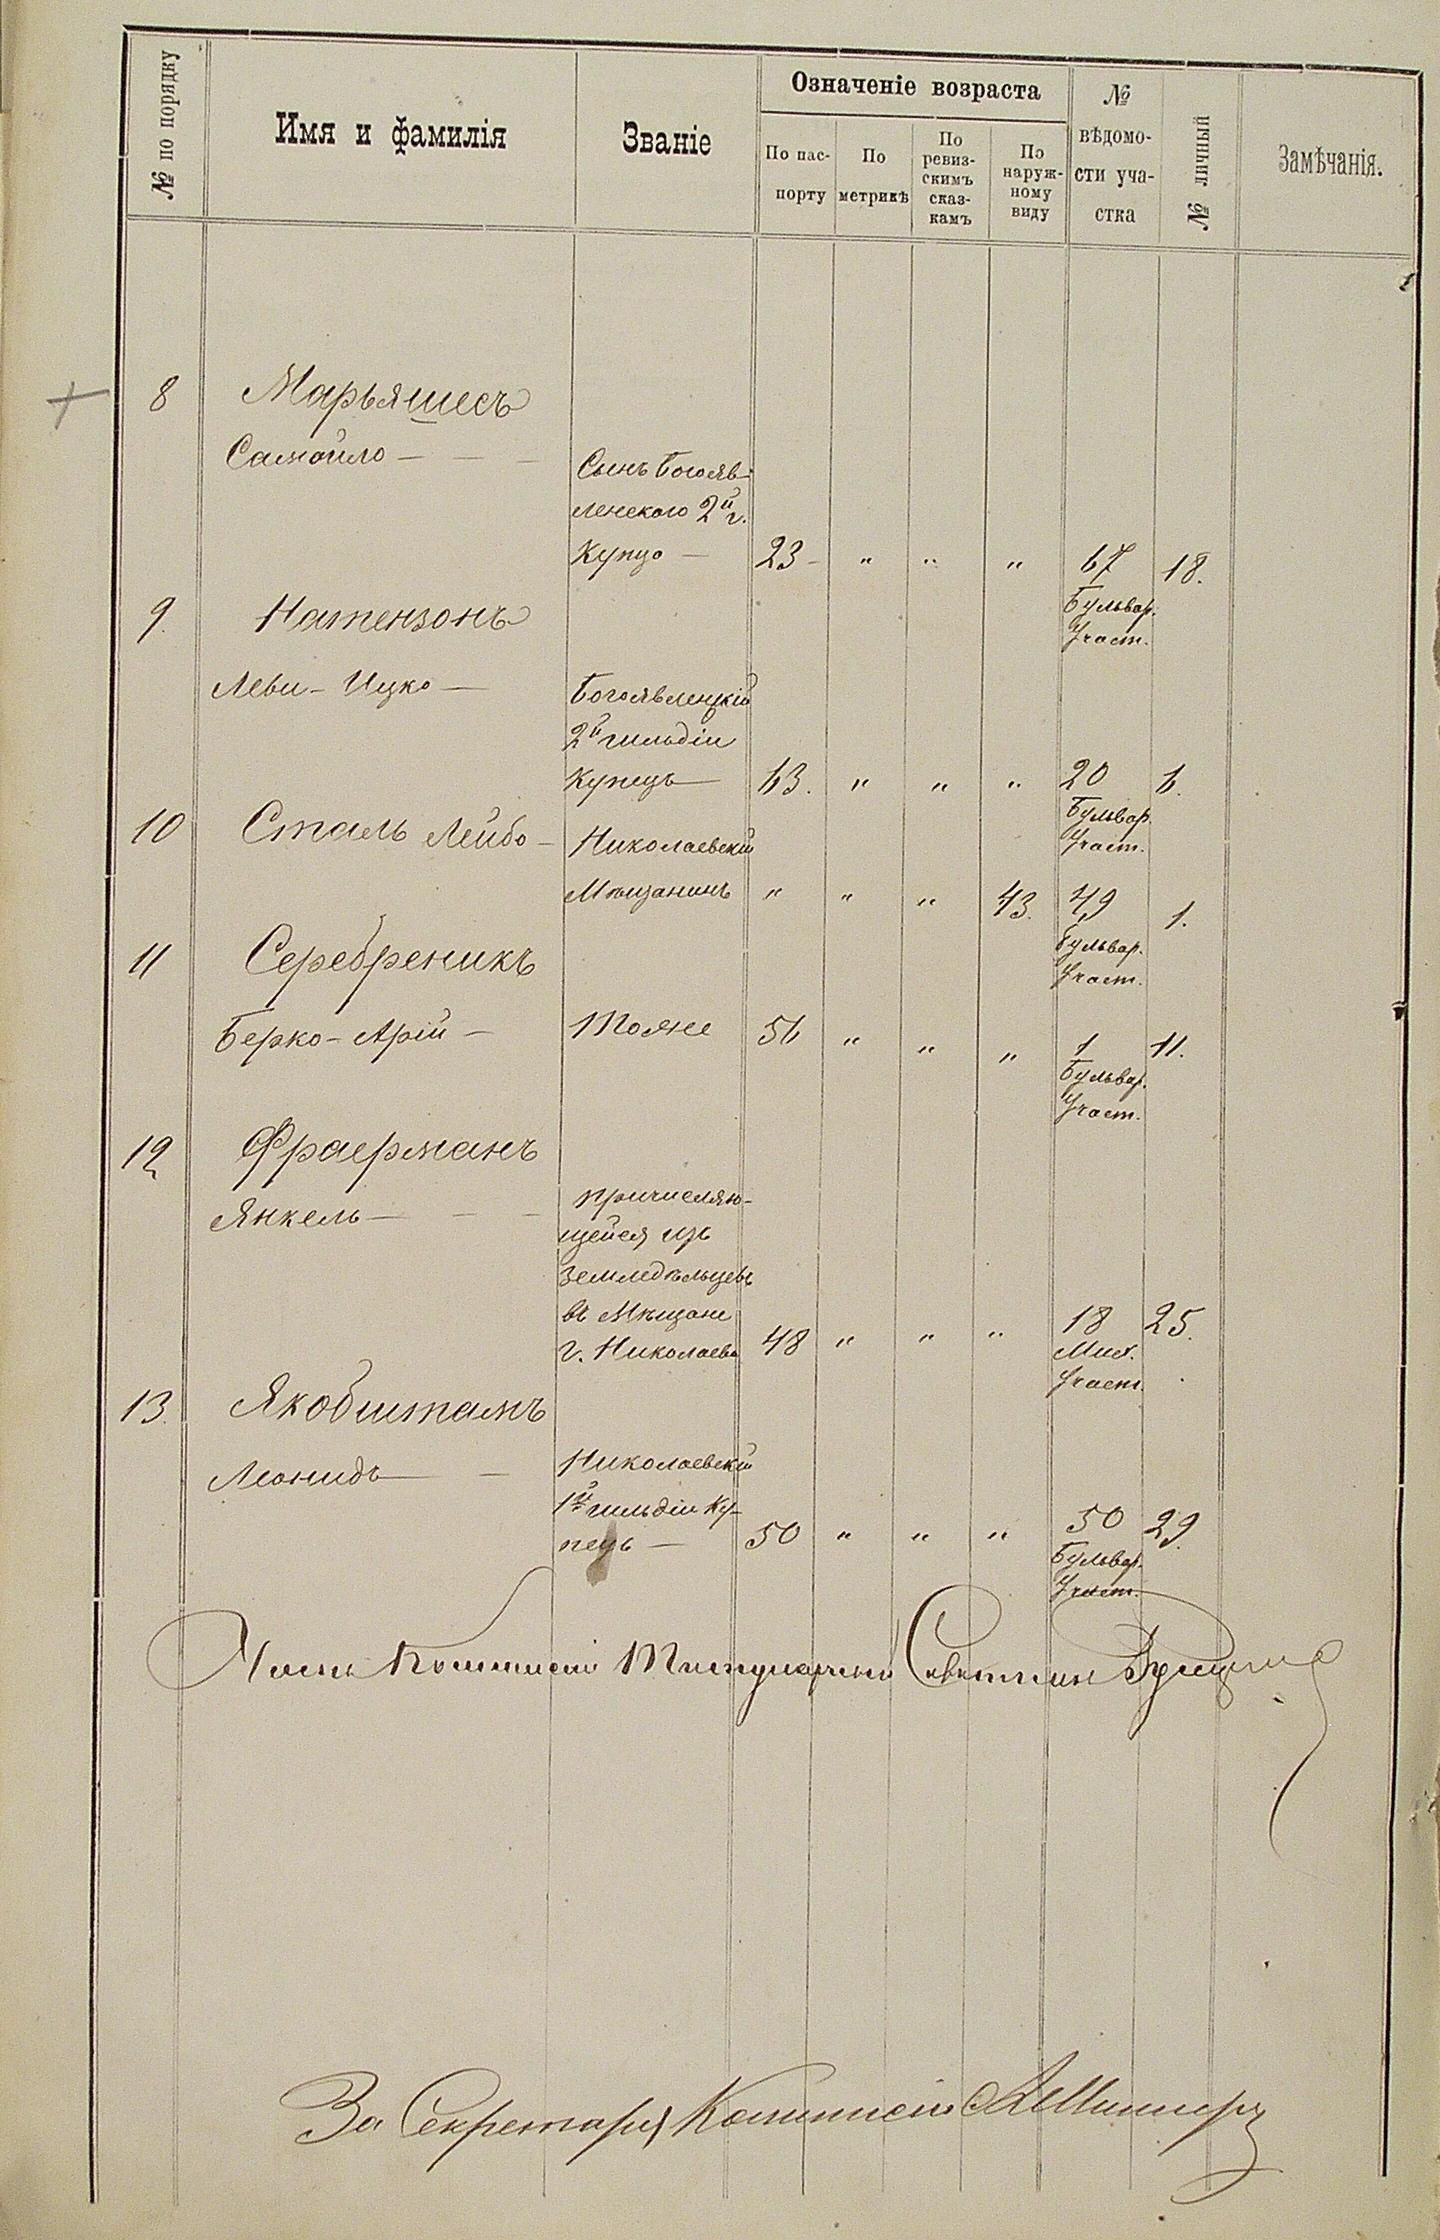 № по порядку
Имя и фамилія
Званіе
Означеніе возраста
По пас-
порту
По
метрикѣ
По
ревиз-
скимъ
сказ-
камъ
По
наруж-
ному
виду
№
вѣдомо-
сти уча-
стка
№ личный
Замѣчанія.
8 Марьяшесъ
Самойло — — — Сынъ Богояв-
ленскаго 2й г.
Купца — 23 — " " " 67 18.
Бульвар.
Участ.
9. Натензонъ
Леви - Ицко — Богоявленскій
2й гильдіи
Купецъ — 63. " " " 20 6.
Бульвар.
Участ.
10 Сталь Лейбо — Николаевскій
Мѣщанинъ " " " 43. 49 1.
Бульвар.
Участ.
11 Серебреникъ
Берко - Арій — Тоже 56 " " " 1 11.
Бульвар.
Участ.
12 Фраерманъ
Янкель — — — причисляю-
щейся изъ
земледѣльцевъ
въ Мѣщане
г. Николаева 48 " " " 18 25.
Мил.
Участ.
13. Якобштамъ
Леонидъ — — Николаевскій
1й гильдіи Ку-
пецъ — 50 " " " 50 29.
Бульвар.
Участ.
Членъ Коммисіи Титулярный Совѣтникъ
За Секретаря Коммисіи А Миллеръ